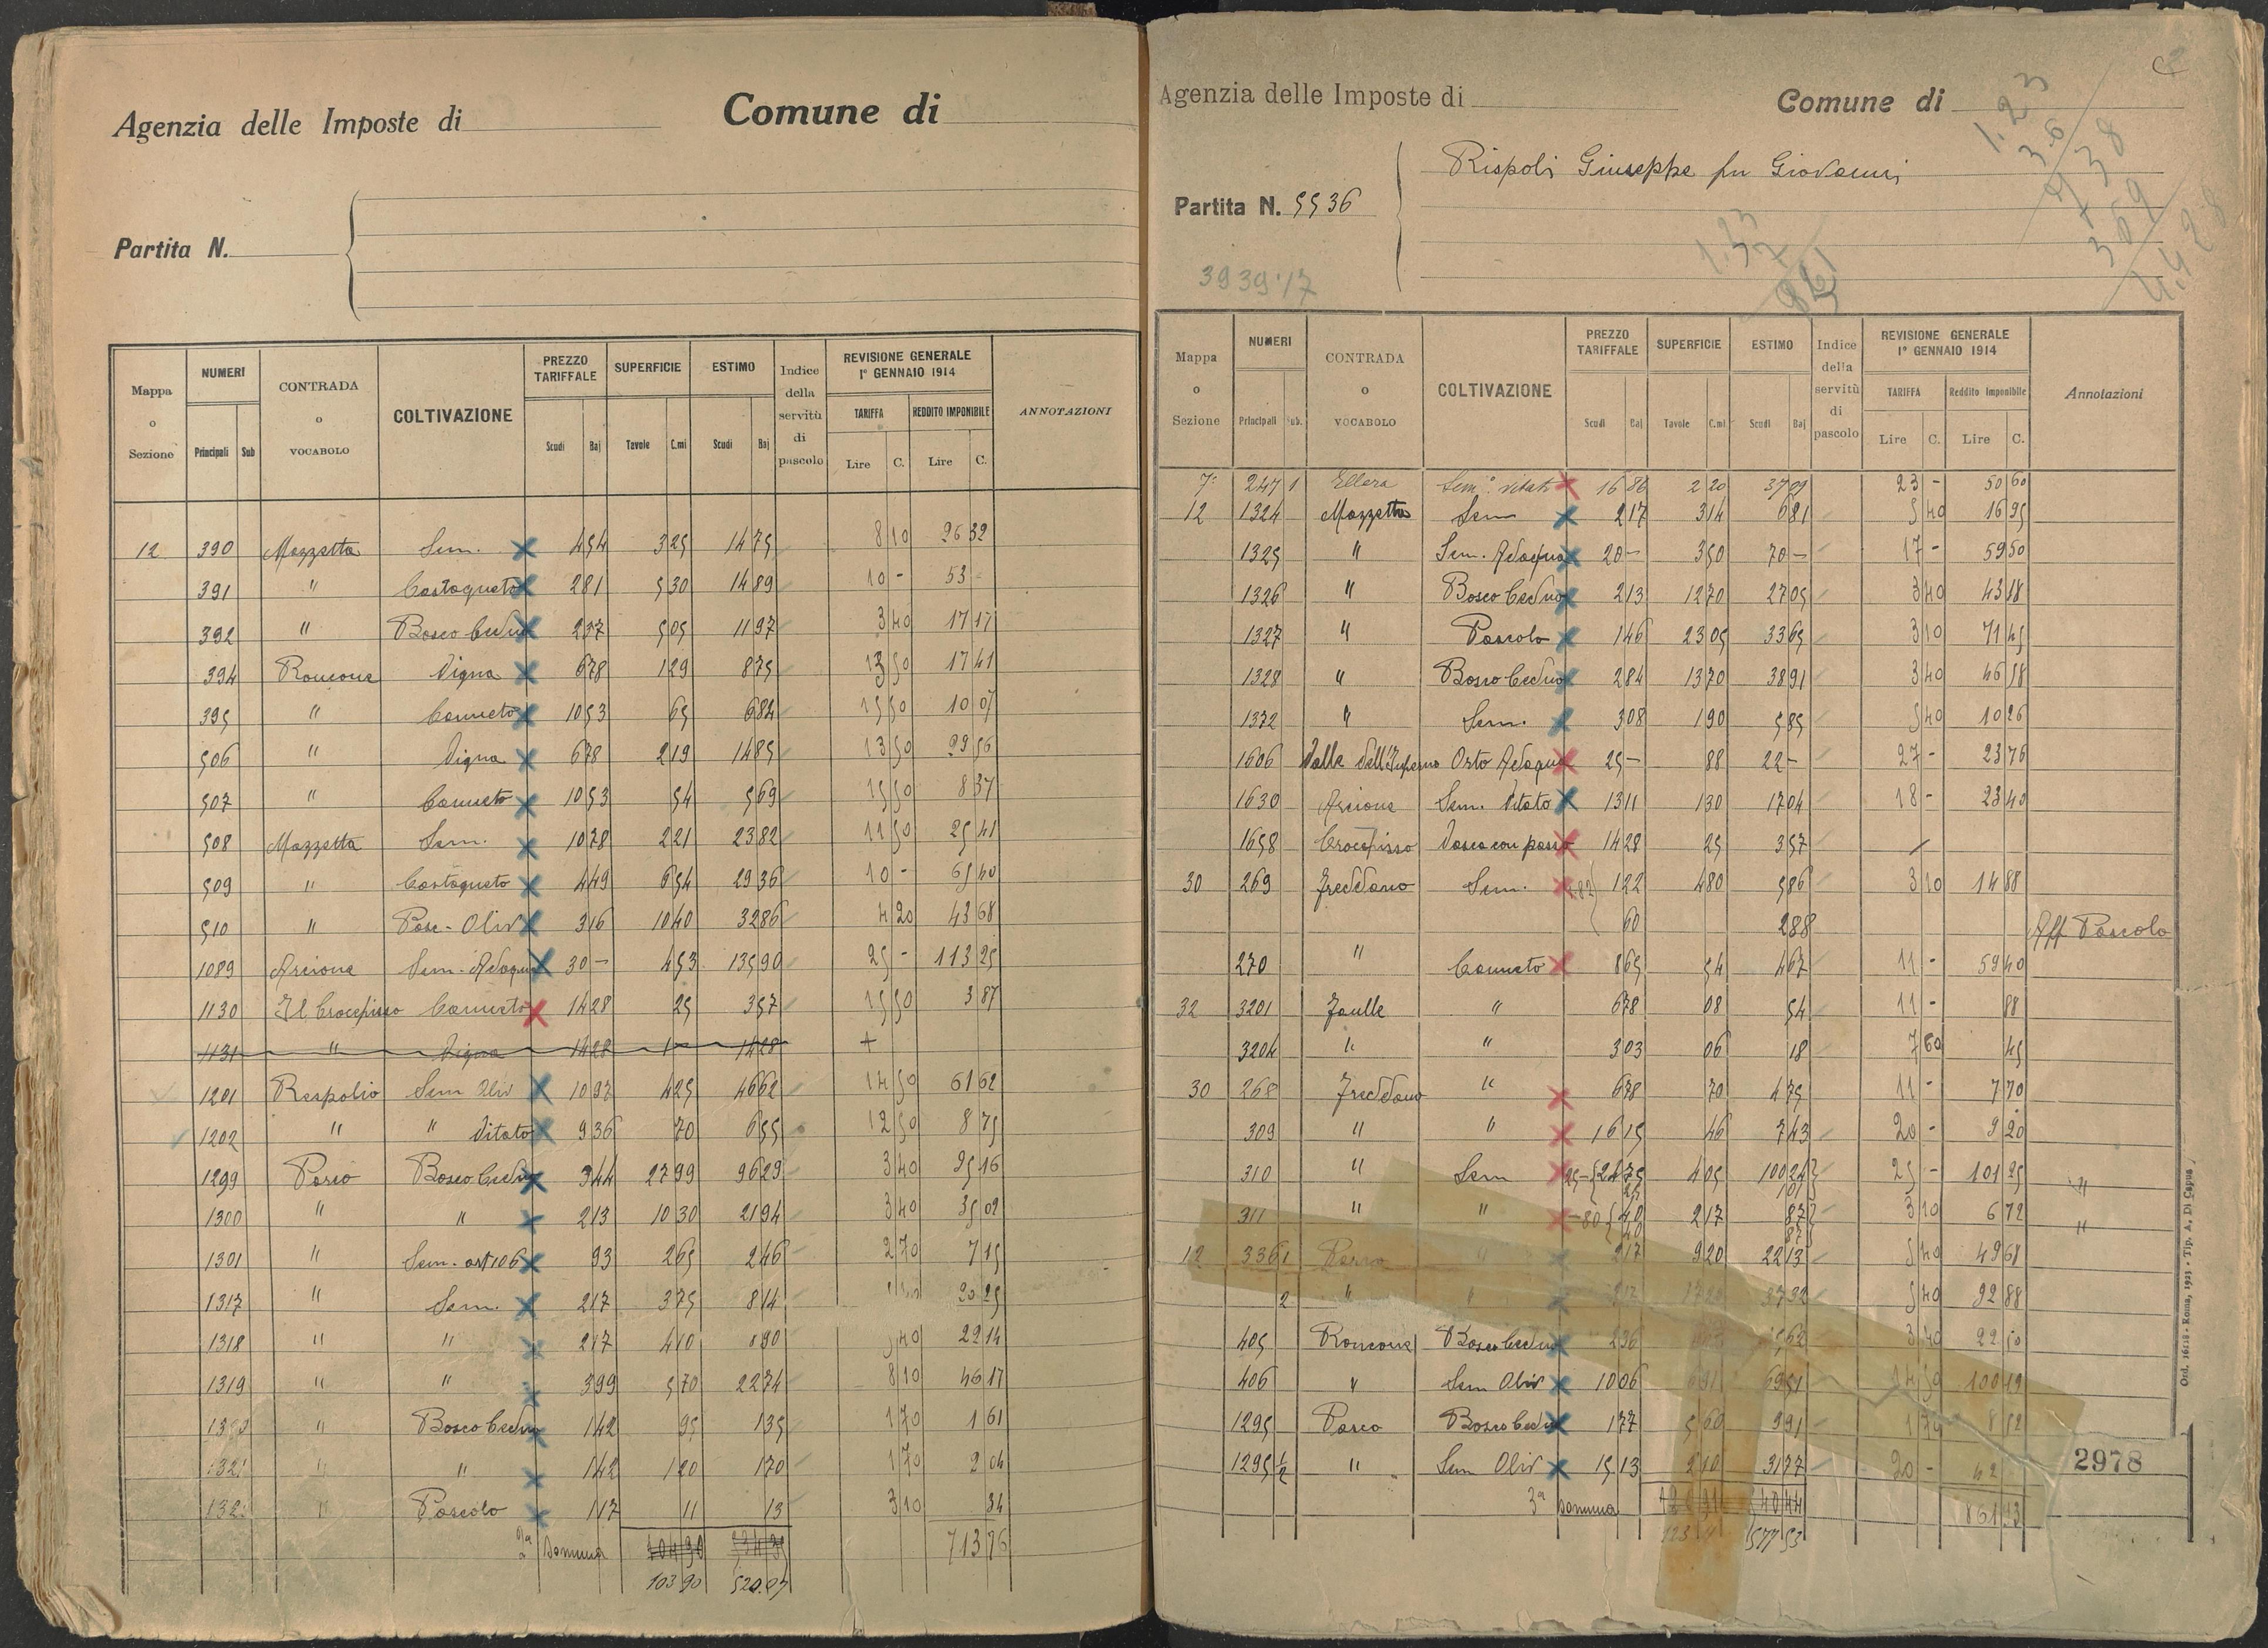 Agenzia delle Imposte di
Comune di
Partita N.
Mappa o Sezione
NUMERI
Principali
Sub
CONTRADA o VOCABOLO
COLTIVAZIONE
PREZZO TARIFFALE
Scudi
Baj
SUPERFICIE
Tavole
C.mi
ESTIMO
Scudi
Baj
Indice della servitù di pascolo
REVISIONE GENERALE 1° GENNAIO 1914
TARIFFA
Lire
C.
REDDITO IMPONIBILE
Lire
C.
ANNOTAZIONI
12 390 Mazzetta Sem. 4 54 3 25 14 75 8 10 26 32
391 " Castagneto 2 81 5 30 14 89 10 - 53 -
392 " Bosco Ceduo 2 37 5 05 11 97 3 40 17 17
394 Roncone Vigna 6 78 1 29 8 75 13 50 17 41
395 " Canneto 10 53 65 6 84 15 50 10 07
506 " Vigna 6 78 2 19 14 85 13 50 29 56
507 " Canneto 10 53 54 5 69 15 50 8 37
508 Mazzetta Sem. 10 78 2 21 23 82 11 50 25 41
509 " Castagneto 4 49 6 54 29 36 10 - 65 40
510 " Pasc. Oliv 3 16 10 40 32 86 4 20 43 68
1089 Arcione Sem. Adaqua 30 - 4 53 135 90 25 - 113 25
1130 Il Crocefisso Canneto 14 28 25 3 57 15 50 3 87
1131 " Vigna 14 28 1 - 14 28 +
1201 Respolio Sem Oliv 10 97 4 25 46 62 14 50 61 62
1202 " " Vitato 9 36 70 6 55 12 50 8 75
1299 Parco Bosco Ceduo 3 44 27 99 96 29 3 40 95 16
1300 " " 2 13 10 30 21 94 3 40 35 02
1301 " Sem. art 106 93 2 65 2 46 2 70 7 15
1317 " Sem. 2 17 3 75 8 14 20 25
1318 " " 2 17 4 10 8 90 5 40 22 14
1319 " " 3 99 5 70 22 74 8 10 46 17
" Bosco Ceduo 1 42 95 1 35 1 70 1 61
" " 1 42 1 20 1 70 1 70 2 04
" Pascolo 1 17 11 13 3 10 34
2a Somma 713 76
103 90 520.07
Agenzia delle Imposte di
Comune di
Partita N. 5536
Rispoli Giuseppe fu Giovanni
3939.17
Mappa o Sezione
NUMERI
Principali
Sub.
CONTRADA o VOCABOLO
COLTIVAZIONE
PREZZO TARIFFALE
Scudi
Baj
SUPERFICIE
Tavole
C.mi
ESTIMO
Scudi
Baj
Indice della servitù di pascolo
REVISIONE GENERALE 1° GENNAIO 1914
TARIFFA
Lire
C.
Reddito Imponibile
Lire
C.
Annotazioni
7a 247 1 Ellera Sem.o vitato 16 86 2 20 37 09 23 - 50 60
12 1324 Mazzetta Sem 2 17 3 14 6 81 5 40 16 95
1325 " Sem. Adaqua 20 - 3 50 70 - 17 - 59 50
1326 " Bosco Ceduo 2 13 12 70 27 05 3 40 43 18
1327 " Pascolo 1 46 23 05 33 65 3 10 71 45
1328 " Bosco Ceduo 2 84 13 70 38 91 3 40 46 58
1372 " Sem. 3 08 1 90 5 85 5 40 10 26
1606 Valle dell'Inferno Orto Adaqua 25 - 88 22 - 27 - 23 76
1630 Arcione Sem. Vitato 13 11 1 30 17 04 18 - 23 40
1658 Crocefisso Vasca con passo 14 28 25 3 57
30 269 Freddano Sem. 1 22 4 80 5 86 3 10 14 88
60 2 88 Aff Pascolo
270 " Canneto 8 65 54 4 67 11 - 59 40
32 3201 Faulle " 6 78 08 54 11 - 88
3204 " " 3 03 06 18 7 60 45
30 268 Freddano " 6 78 70 4 75 11 - 7 70
309 " " 16 15 46 7 43 20 - 9 20
310 " Sem 25 - 24 75 4 05 100 24 25 - 101 25 "
25 1 01
311 " " - 80 40 2 17 87 3 10 6 72 "
40 87
12 336 1 Parco " 2 17 9 20 22 13 5 40 49 68
2 " " 5 40 92 88
405 Roncone Bosco Ceduo 2 36 3 40 22 50
406 " Sem Oliv 10 06 6 91 69 51 14 50 100 19
1295 Parco Bosco Ceduo 1 77 5 60 9 91 1 70
1295 1/2 " Sem Oliv 15 13 2 10 31 77 20 - 42
3a Somma 861 13
577 53
2978
Ord. 16118 - Roma, 1923 - Tip. A. Di Capua